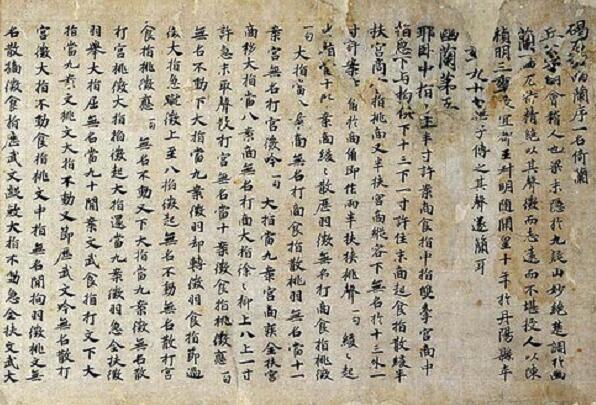 碣石調幽蘭序一名倚蘭
丘公字明會稽人也梁末隱於九疑山妙絕楚調於幽
蘭一曲尤特精絕以其聲微而志遠而不堪授人以陳
禎明三年授宜都王叔明隨開皇十年於丹陽縣卒
年九十七無子傳之其聲遂簡耳
幽蘭第五
耶臥中指十上半寸許案商食指中指雙牽宮商中
指急下与拘俱下十三下一寸許住末商起食指散緩半
扶宮商食指挑商又半扶宮商縱容下無名於十三外一
寸許案商角於商角即作兩半扶挾挑聲一句緩々起
大指當八案商緩々散歷羽徵無名打商食指挑徵
一句 大指當八案商無名打商食指散挑羽無名當十一
案宮無名打宮徵吟一句 大指當九案宮商疾全扶宮
商移大指當八案商無名打商大指徐々抑上八上一寸
許急末取聲散打宮無名當十案徵食指挑徵一句
無名不動下大指當九案徵羽却轉徵羽食指節過
徵大指急蹴徵上至八抑徵起無名不動無名散打宮
食指挑徵應一句 無名不動又下大指當九案徵無名散
打宮挑徵大指抑徵起大指還當九案徵羽急全扶徵
羽舉大指屈無名當九十間案文武食指打文下大
指當九案文挑文大指不動又節歷武文吟無名散打
宮徵大指不動食指挑文中指無名間拘羽徵挑文無
名散摘徵食指應武文蹴大指不動急全扶文武大